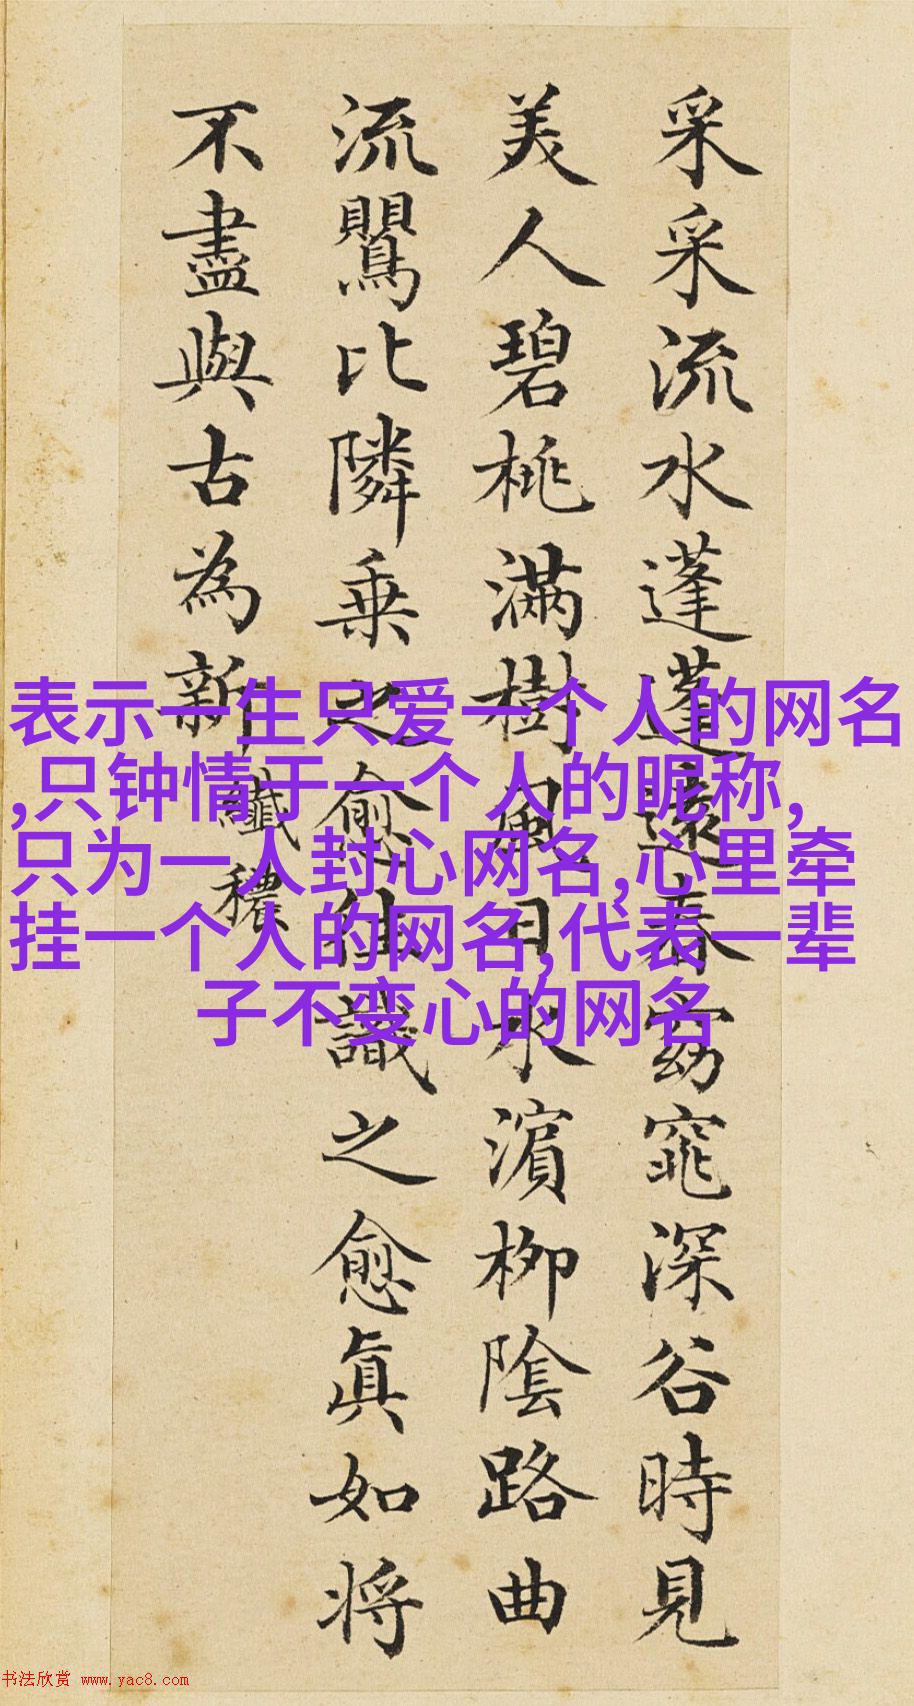 采采流水蓬蓬遠春窈窕深谷時見
美人碧桃滿樹風日水濱柳陰路曲
流鸎比隣乗之愈往識之愈眞如将
不盡與古為新
纖穠
表示一生只爱一个人的网名
,只钟情于一个人的昵称,
只为一人封心网名,心里牵
挂一个人的网名,代表一辈
子不变心的网名
书法欣赏 www.yac8.com